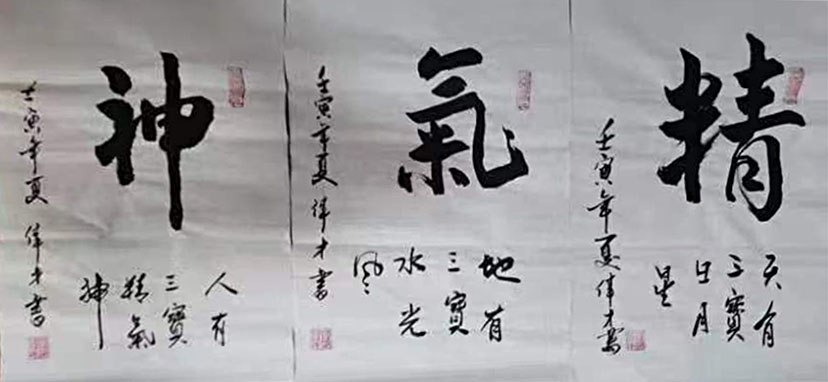 精
天有
三寶
日月
星
壬寅年夏偉才書
氣
地有
三寶
水光
風
壬寅年夏偉才書
神
人有
三寶
精氣
神
壬寅年夏偉才書